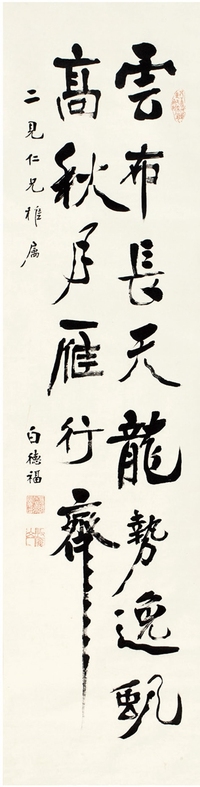 雲布長天龍勢逸
高秋月雁行齊
二見仁兄雅屬
白德福